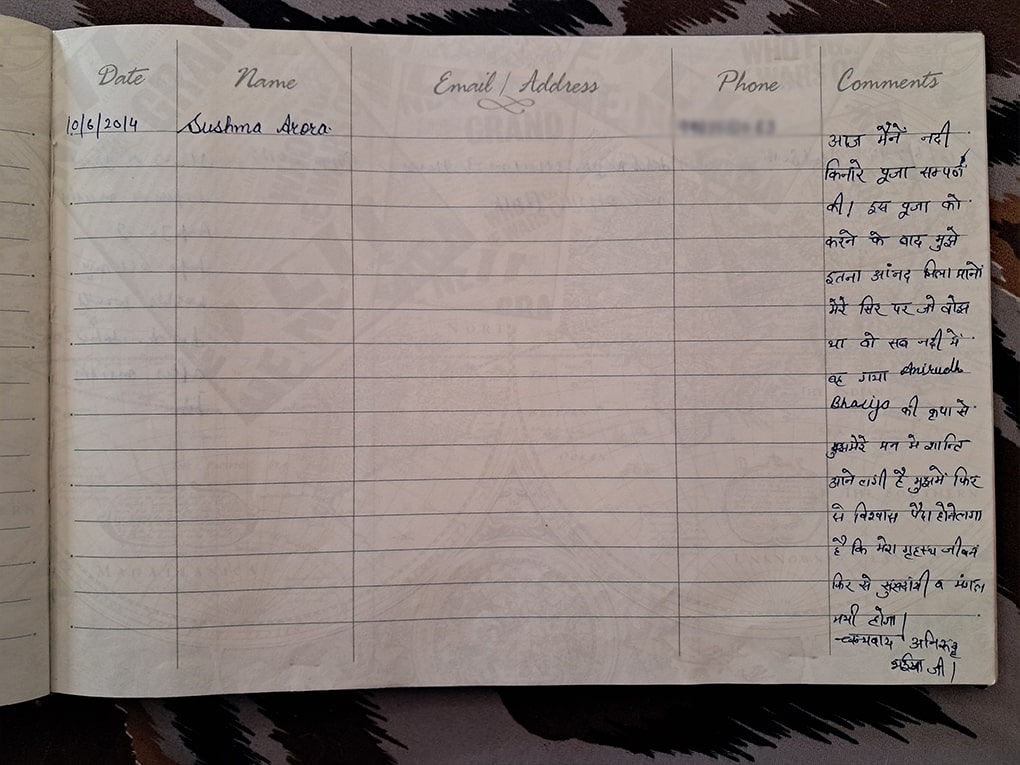 Date Name Email / Address Phone Comments
10/6/2014 Sushma Arora.
आज मैंनें नदी
किनारे पूजा सम्पर्ण
की। इस पूजा को
करने के बाद मुझे
इतना आंनद मिला मानों
मेरे सिर पर जो बोझ
था वो सब नदी में
बह गया Anirudh
Bhaiya की कृपा से
मेरे मन मे शान्ति
आने लगी है मुझमें फिर
से विश्वास पैदा होनेलगा
है कि मेरा गृहस्थ जीवन
फिर से सुखदायी व मंगल
मयी होगा।
धन्यवाद अनिरूद्ध
भईया जी।